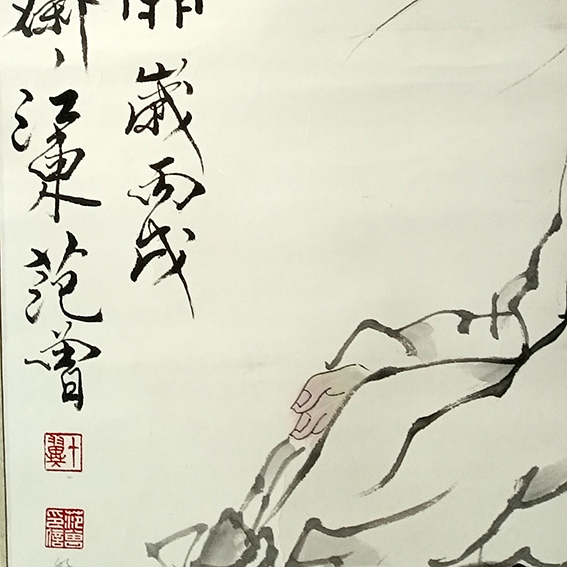 歲丙戌
江東范曾
十翼
范曾印信